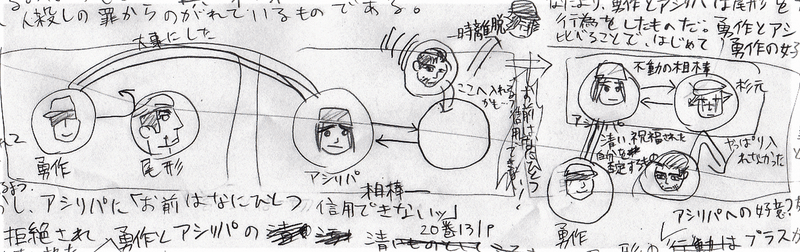 人殺しの罪からのがれているものである。
大事にした
一時離脱
ここへ入れる
かも…
お前はなにひとつ
信用できない
勇作
尾形
アシリパ
相棒
し、アシリパに「お前はなにひとつ 信用できないッ」
20巻131P
拒絶され、勇作とアシリパの
清いものとして
勇作とアシリパは尾形と
行為をしたものだ。勇作とアシ
比べることで、はじめて 勇作の好
不動の相棒
杉元
アシリパ
清い祝福された
自分を
否定するもの
やっぱり入
れなかった
勇作
アシリパへの好意?
プラスが